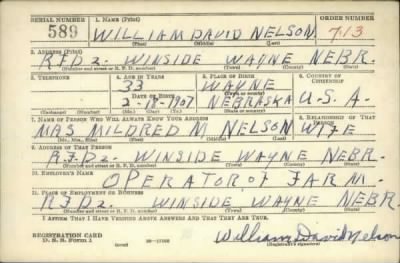 SERIAL NUMBER 1. NAME (Print) ORDER NUMBER
589 WILLIAM DAVID NELSON 713
(First) (Middle) (Last)
2. ADDRESS (Print)
RFD 2- WINSIDE WAYNE NEBR.
(Number and street or R. F. D. number) (Town) (County) (State)
3. TELEPHONE 4. AGE IN YEARS 5. PLACE OF BIRTH 6. COUNTRY OF CITIZENSHIP
33 WAYNE
DATE OF BIRTH (Town or county)
2-19-1907 NEBRASKA U.S.A.
(Exchange) (Number) (Mo.) (Day) (Yr.) (State or country)
7. NAME OF PERSON WHO WILL ALWAYS KNOW YOUR ADDRESS 8. RELATIONSHIP OF THAT PERSON
MRS MILDRED M NELSON WIFE
(Mr., Mrs., Miss) (First) (Middle) (Last)
9. ADDRESS OF THAT PERSON
R.F.D 2. WINSIDE WAYNE NEBR.
(Number and street or R. F. D. number) (Town) (County) (State)
10. EMPLOYER'S NAME
OPERATOR OF FARM.
11. PLACE OF EMPLOYMENT OR BUSINESS
RFD 2. WINSIDE WAYNE NEBR.
(Number and street or R. F. D. number) (Town) (County) (State)
I AFFIRM THAT I HAVE VERIFIED ABOVE ANSWERS AND THAT THEY ARE TRUE.
REGISTRATION CARD
D. S. S. FORM 1 (over) William David Nelson
(Registrant's signature)